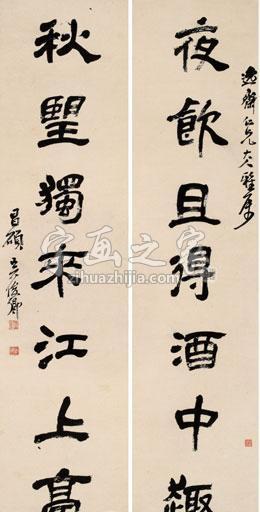 逸齋仁兄大人雅屬
夜飲且得酒中趣
秋望獨來江上高
昌碩吳俊卿
字画之家
zihuazhijia.com